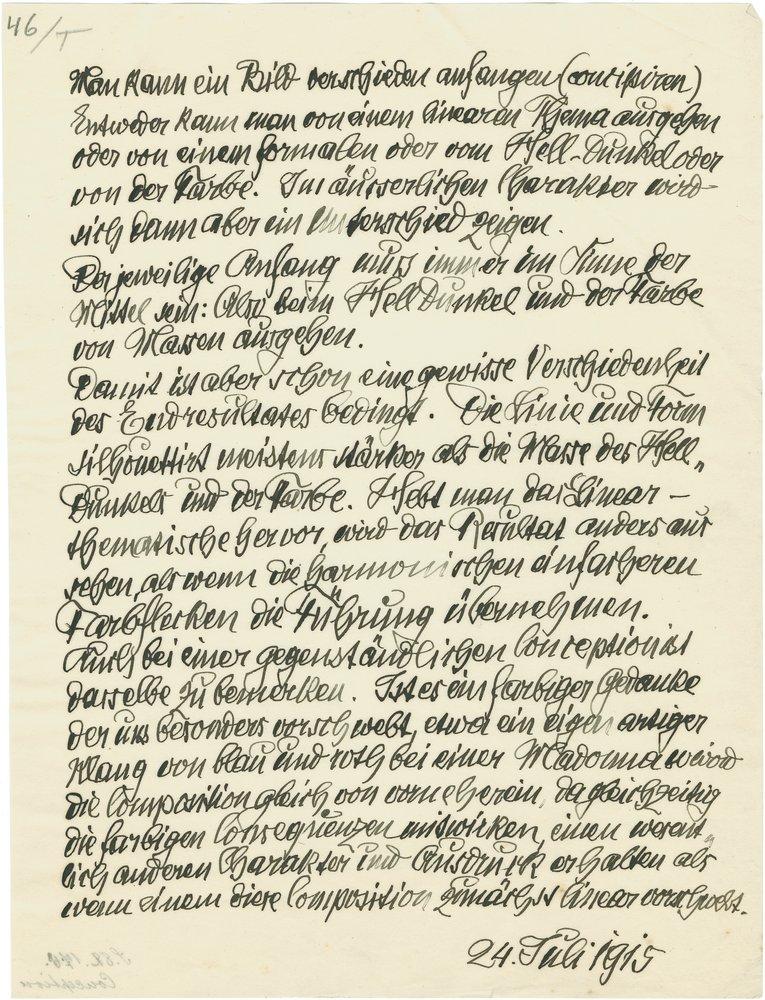 46/T
Man kann ein Bild verschieden anfangen (concipiren)
Entweder kann man von einem linearen Thema ausgehen
oder von einem formalen oder vom Hell-Dunkel oder
von der Farbe. Im äusserlichen Charakter wird
sich dann aber ein Unterschied zeigen.
Der jeweilige Anfang muss immer im Sinne der
Mittel sein: Also beim Hell Dunkel und der Farbe
von Massen ausgehen.
Damit ist aber schon eine gewisse Verschiedenheit
des Endresultates bedingt. Die Linie und Form
silhouettirt meistens stärker als die Masse des Hell„
Dunkels und der Farbe. Hebt man das Linear-
thematische hervor, wird das Resultat anders aus
sehen, als wenn die harmonischen einfacheren
Farbflecken die Führung übernehmen.
Auch bei einer gegenständlichen Conception ist
dasselbe zu bemerken. Ist es ein farbiger Gedanke
der uns besonders vorschwebt, etwa ein eigenartiger
Klang von blau und roth bei einer Madonna wird
die Composition gleich von vorneherein, da gleichzeitig
die farbigen Consequenzen mitwirken, einen wesent„
lich anderen Charakter und Ausdruck erhalten als
wenn einem diese Composition zunächst linear vorschwebt.
24. Juli 1915
Conception